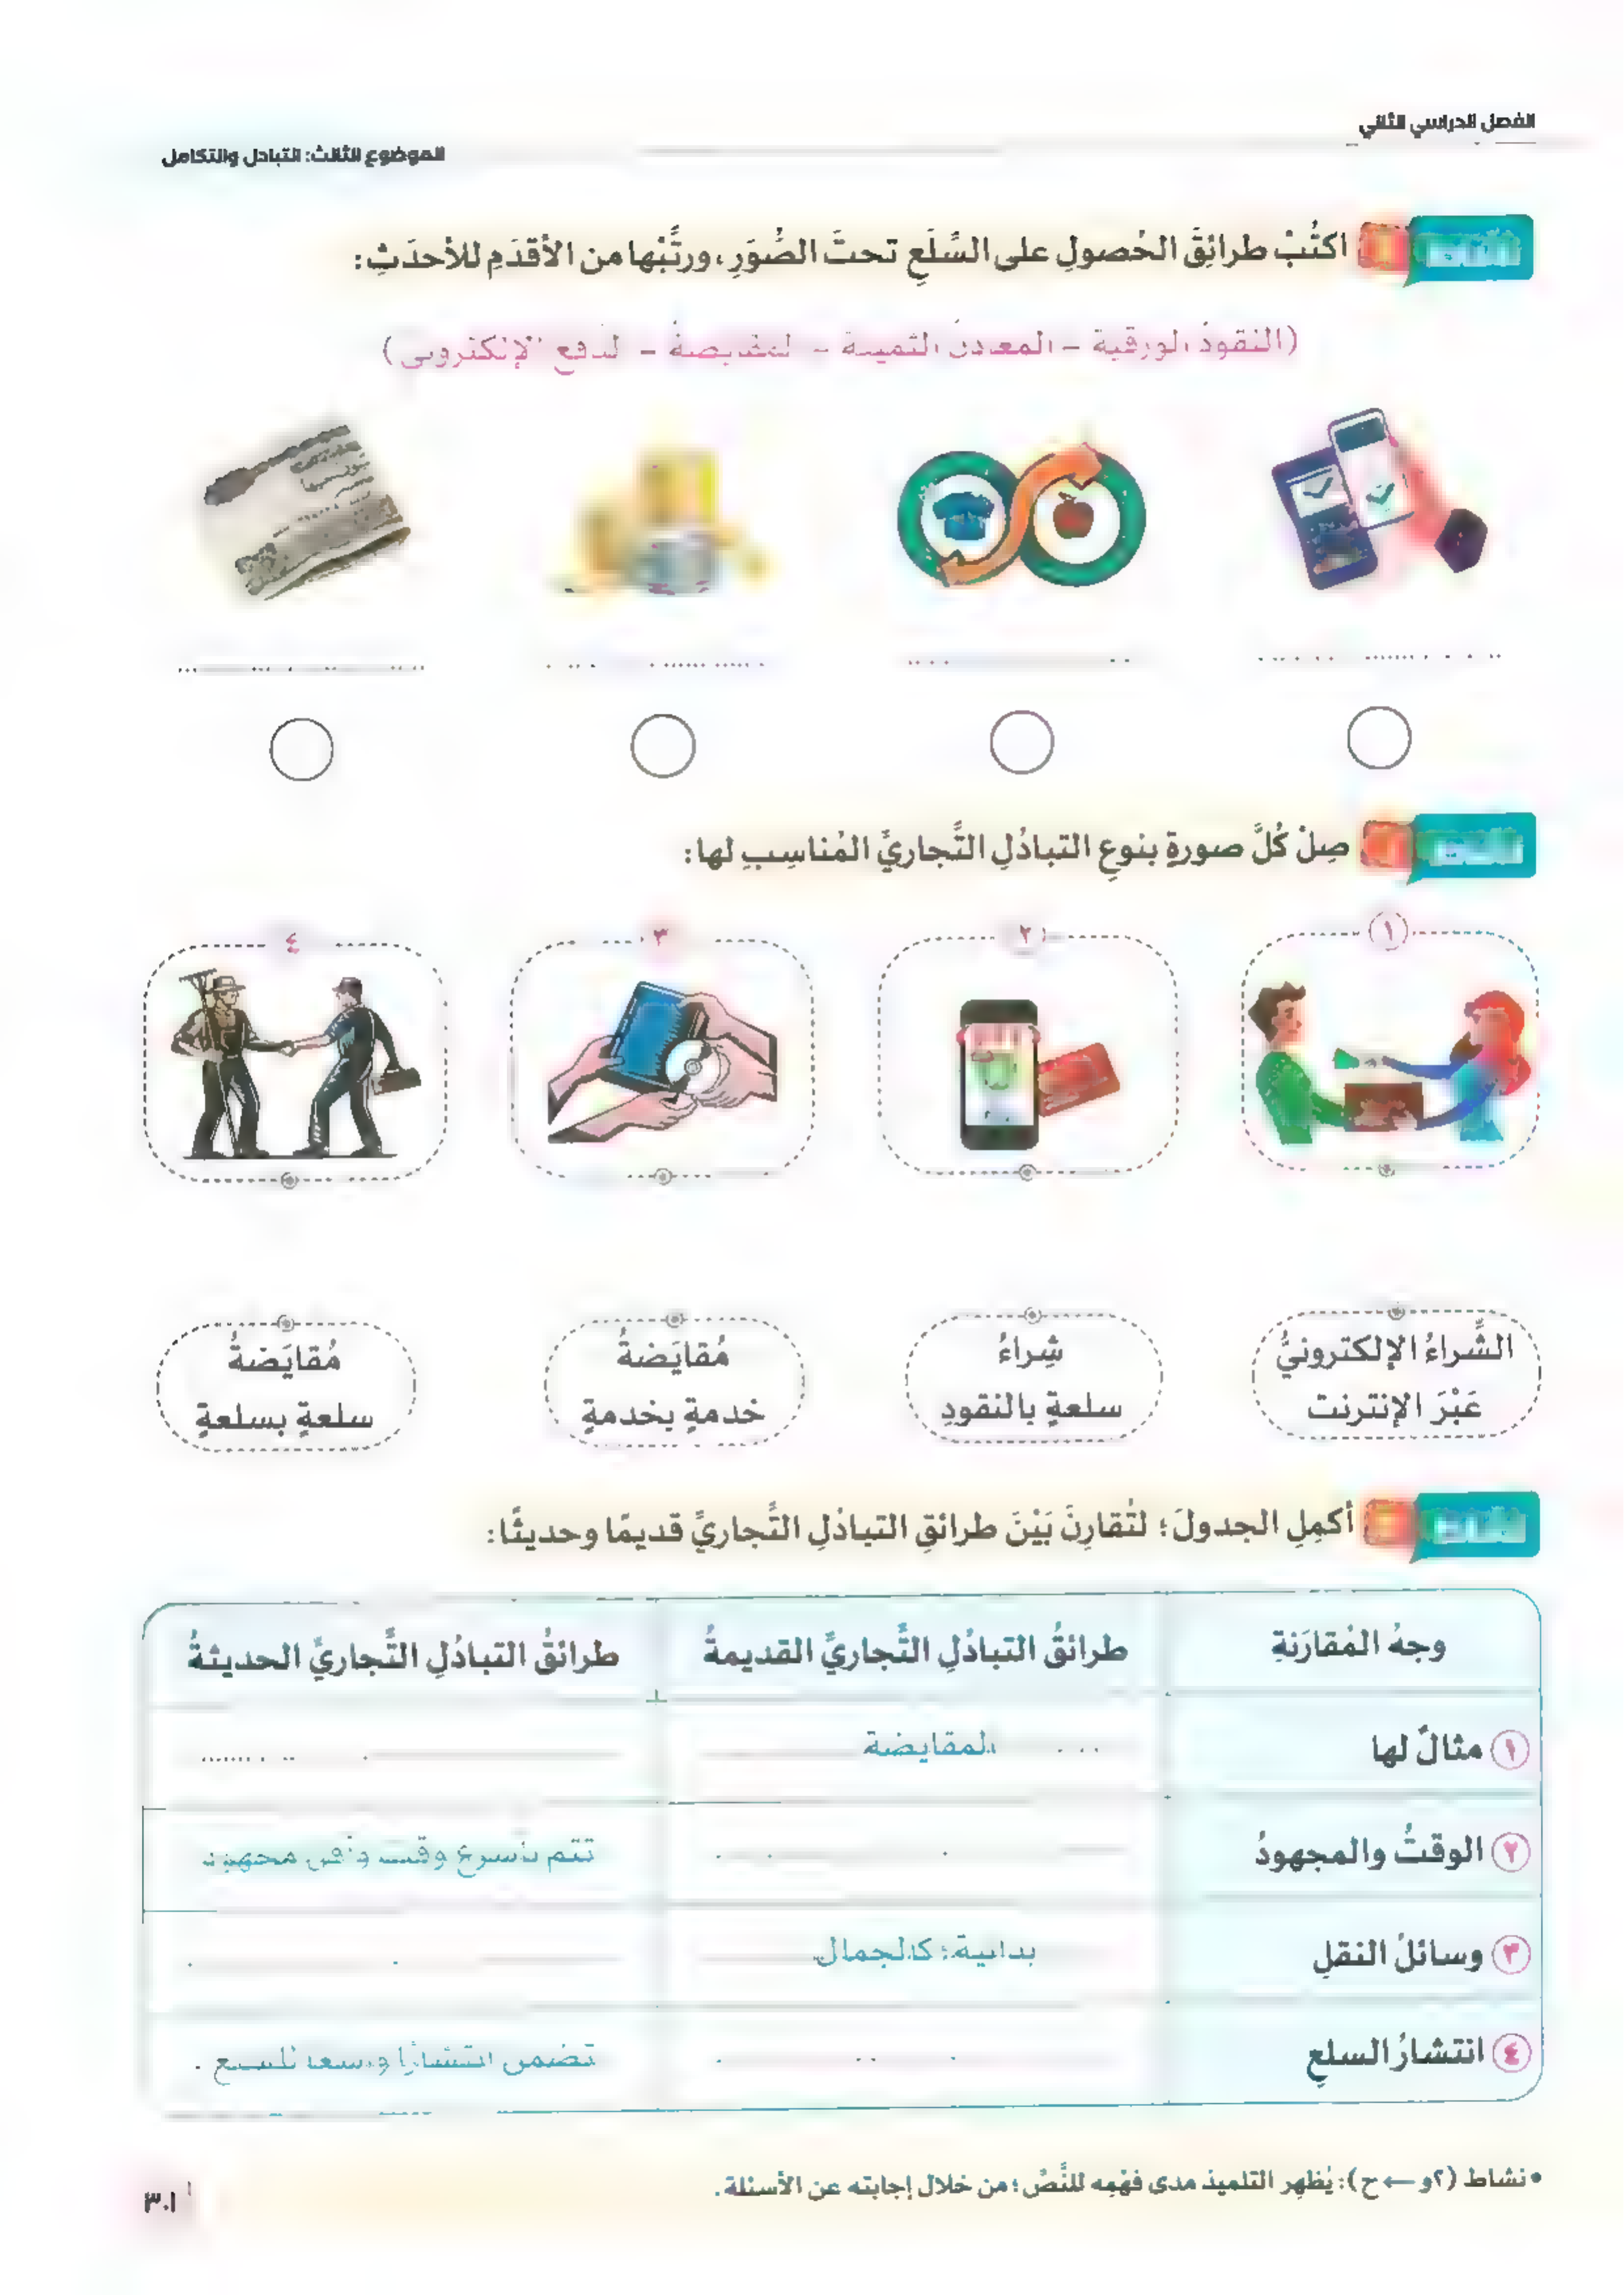 الفصل الدراسي الثاني
الموضوع الثالث: التبادل والتكامل
اكتُبْ طرائِقَ الحُصولِ على السِّلَعِ تحتَ الصُّوَرِ، ورتِّبْها من الأقدَمِ للأحدَثِ:
(النقودُ الورقية - المعادن الثمينة - المقايضةُ - الدفع الإلكتروني)
صِلْ كُلَّ صورةٍ بنوعِ التبادُلِ التِّجاريِّ المُناسِبِ لها:
١
٢
٣
٤
الشِّراءُ الإلكترونيُّ
عَبْرَ الإنترنت
شِراءُ
سلعةٍ بالنقودِ
مُقايَضةُ
خدمةٍ بخدمةٍ
مُقايَضةُ
سلعةٍ بسلعةٍ
أكمِلِ الجدولَ؛ لتُقارِنَ بَيْنَ طرائقِ التبادُلِ التِّجاريِّ قديمًا وحديثًا:
وجهُ المُقارَنةِ
طرائقُ التبادُلِ التِّجاريِّ القديمةُ
طرائقُ التبادُلِ التِّجاريِّ الحديثةُ
١ مثالٌ لها
المقايضة
٢ الوقتُ والمجهودُ
تتم بأسرع وقت وأقل مجهود.
٣ وسائلُ النقلِ
بدائية؛ كالجمال
٤ انتشارُ السلعِ
تضمن انتشارًا واسعا للسلع.
• نشاط (٢و ← ح): يُظهِر التلميذ مدى فهْمِه للنَّصِّ؛ من خلال إجابته عن الأسئلة.
٣٠١